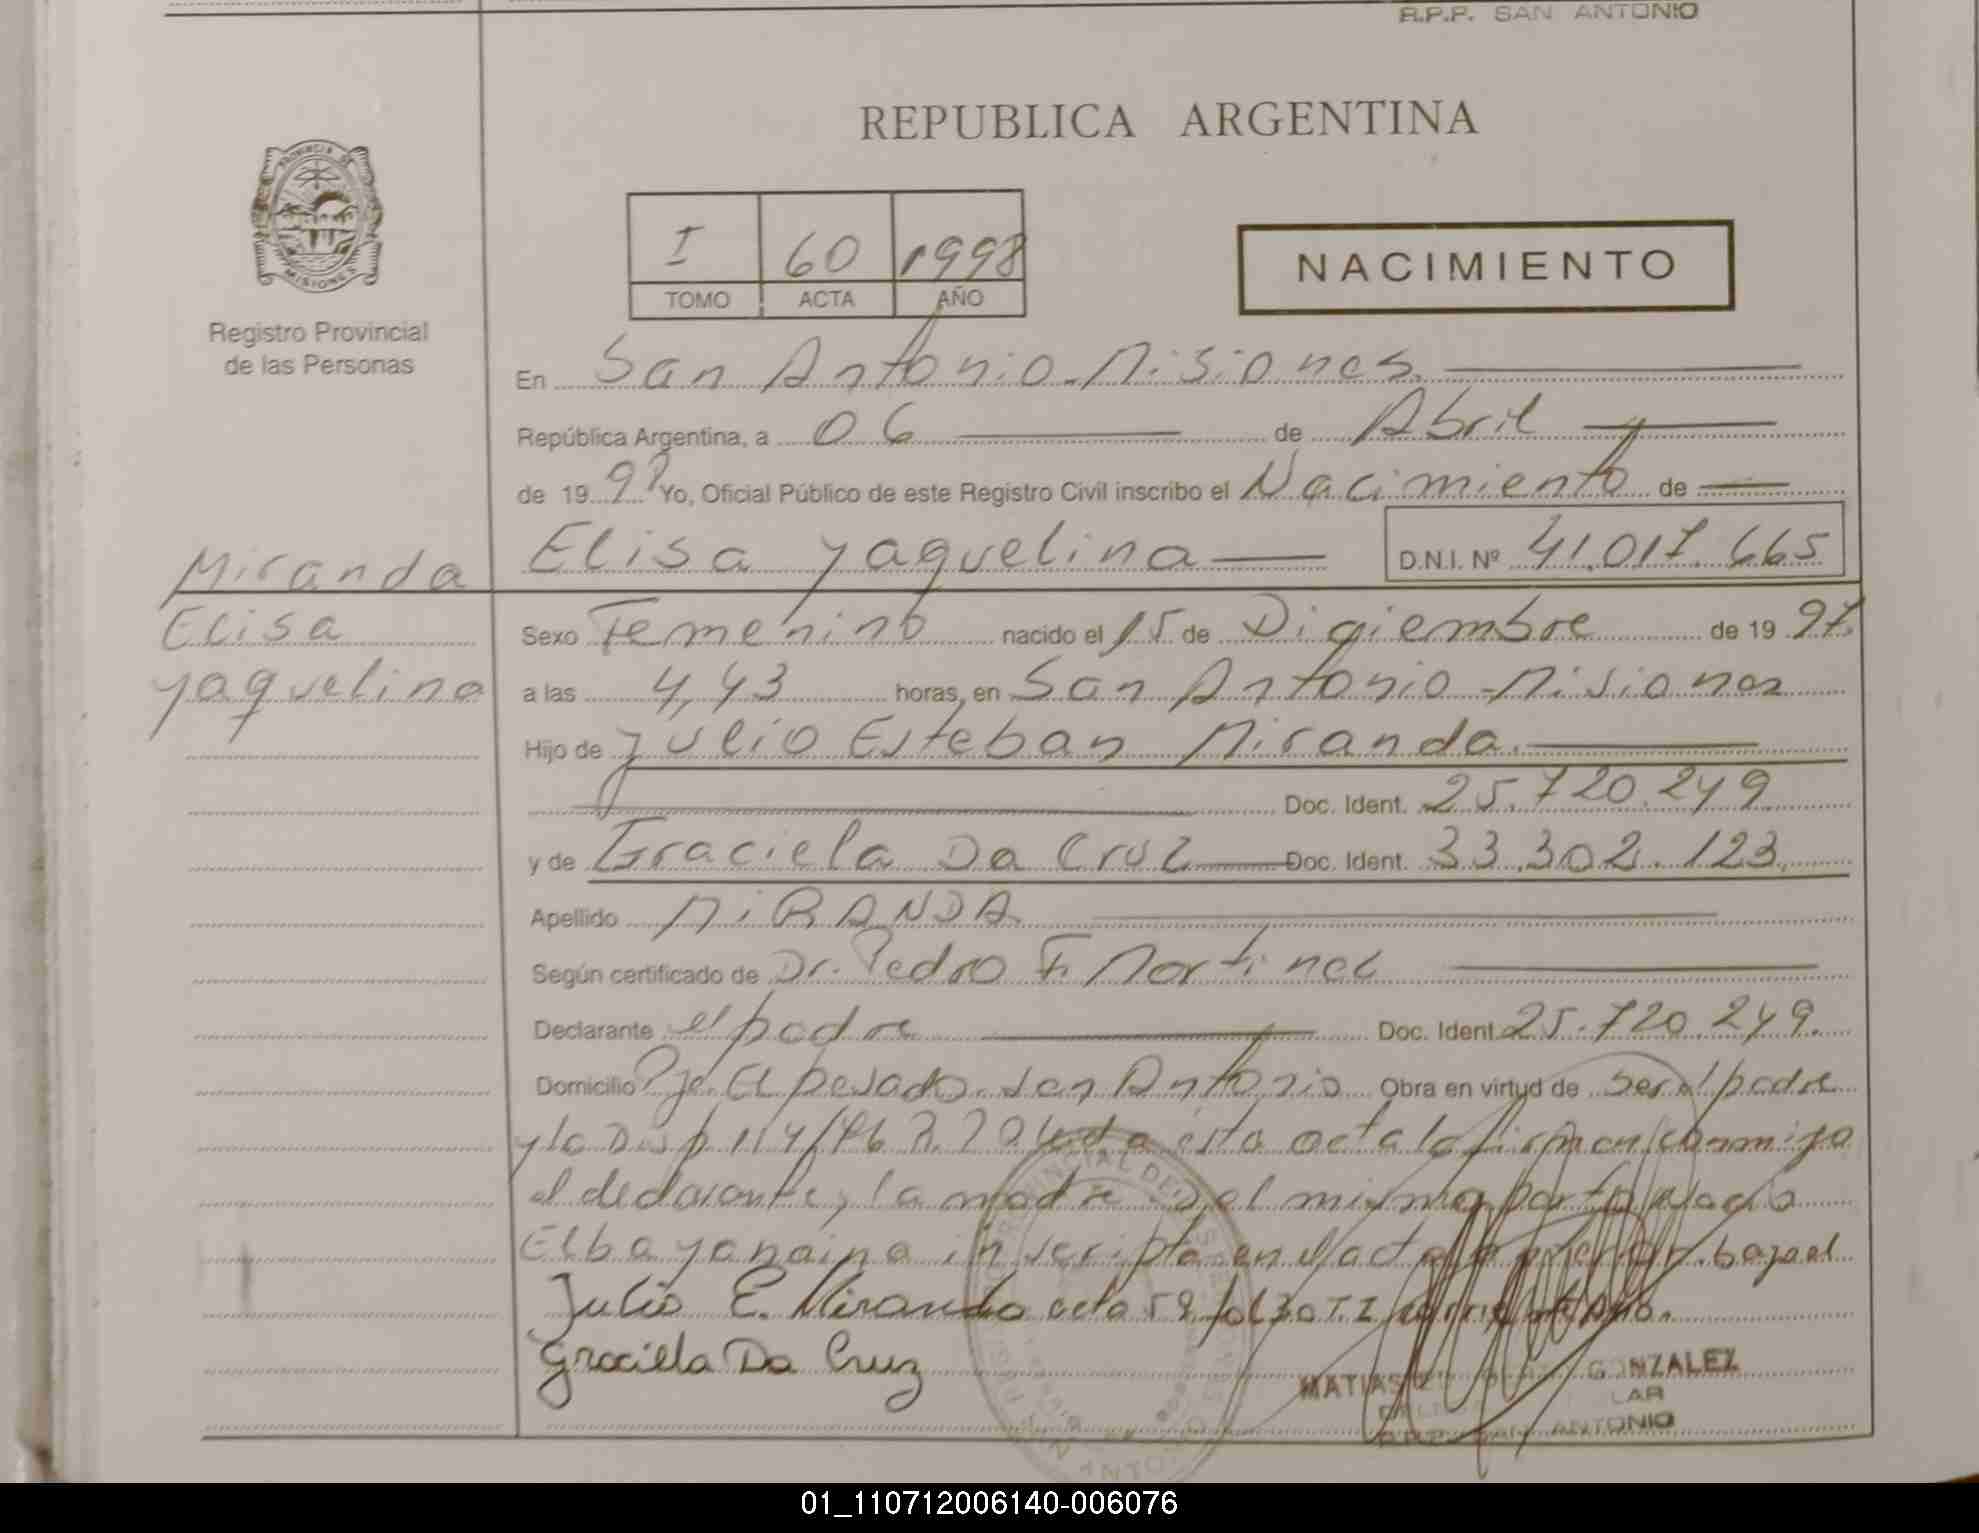 R.P.P. SAN ANTONIO
REPUBLICA ARGENTINA
PROVINCIA DE
MISIONES
Registro Provincial
de las Personas
I 60 1998
TOMO ACTA AÑO
NACIMIENTO
En San Antonio-Misiones.
República Argentina, a 06 de Abril
de 19 98 Yo, Oficial Público de este Registro Civil inscribo el Nacimiento de
Elisa yaquelina D.N.I. Nº 41.017.665
Miranda
Elisa
yaquelina
Sexo Femenino nacido el 15 de Digiembre de 19 97.
a las 4,43 horas, en San Antonio-Misiones
Hijo de Julio Esteban Miranda.
Doc. Ident. 25.720.249
y de Graciela Da Cruz Doc. Ident. 33.302.123.
Apellido MIRANDA
Según certificado de Dr. Pedro F. Martinez
Declarante el padre Doc. Ident. 25.720.249.
Domicilio Pje. El pesado. San Antonio Obra en virtud de ser el padre
y la Disp 114/96 esta acta la firman conmigo
el declarante, la madre del mismo parto nacio
Elba yanaina inscripta en el acta anterior. bajo el
Julio E. Miranda acta 59 fol 30 T. I corriente Año.
Graciela Da Cruz
MATIAS GONZALEZ
R.P.P. SAN ANTONIO
01_110712006140-006076